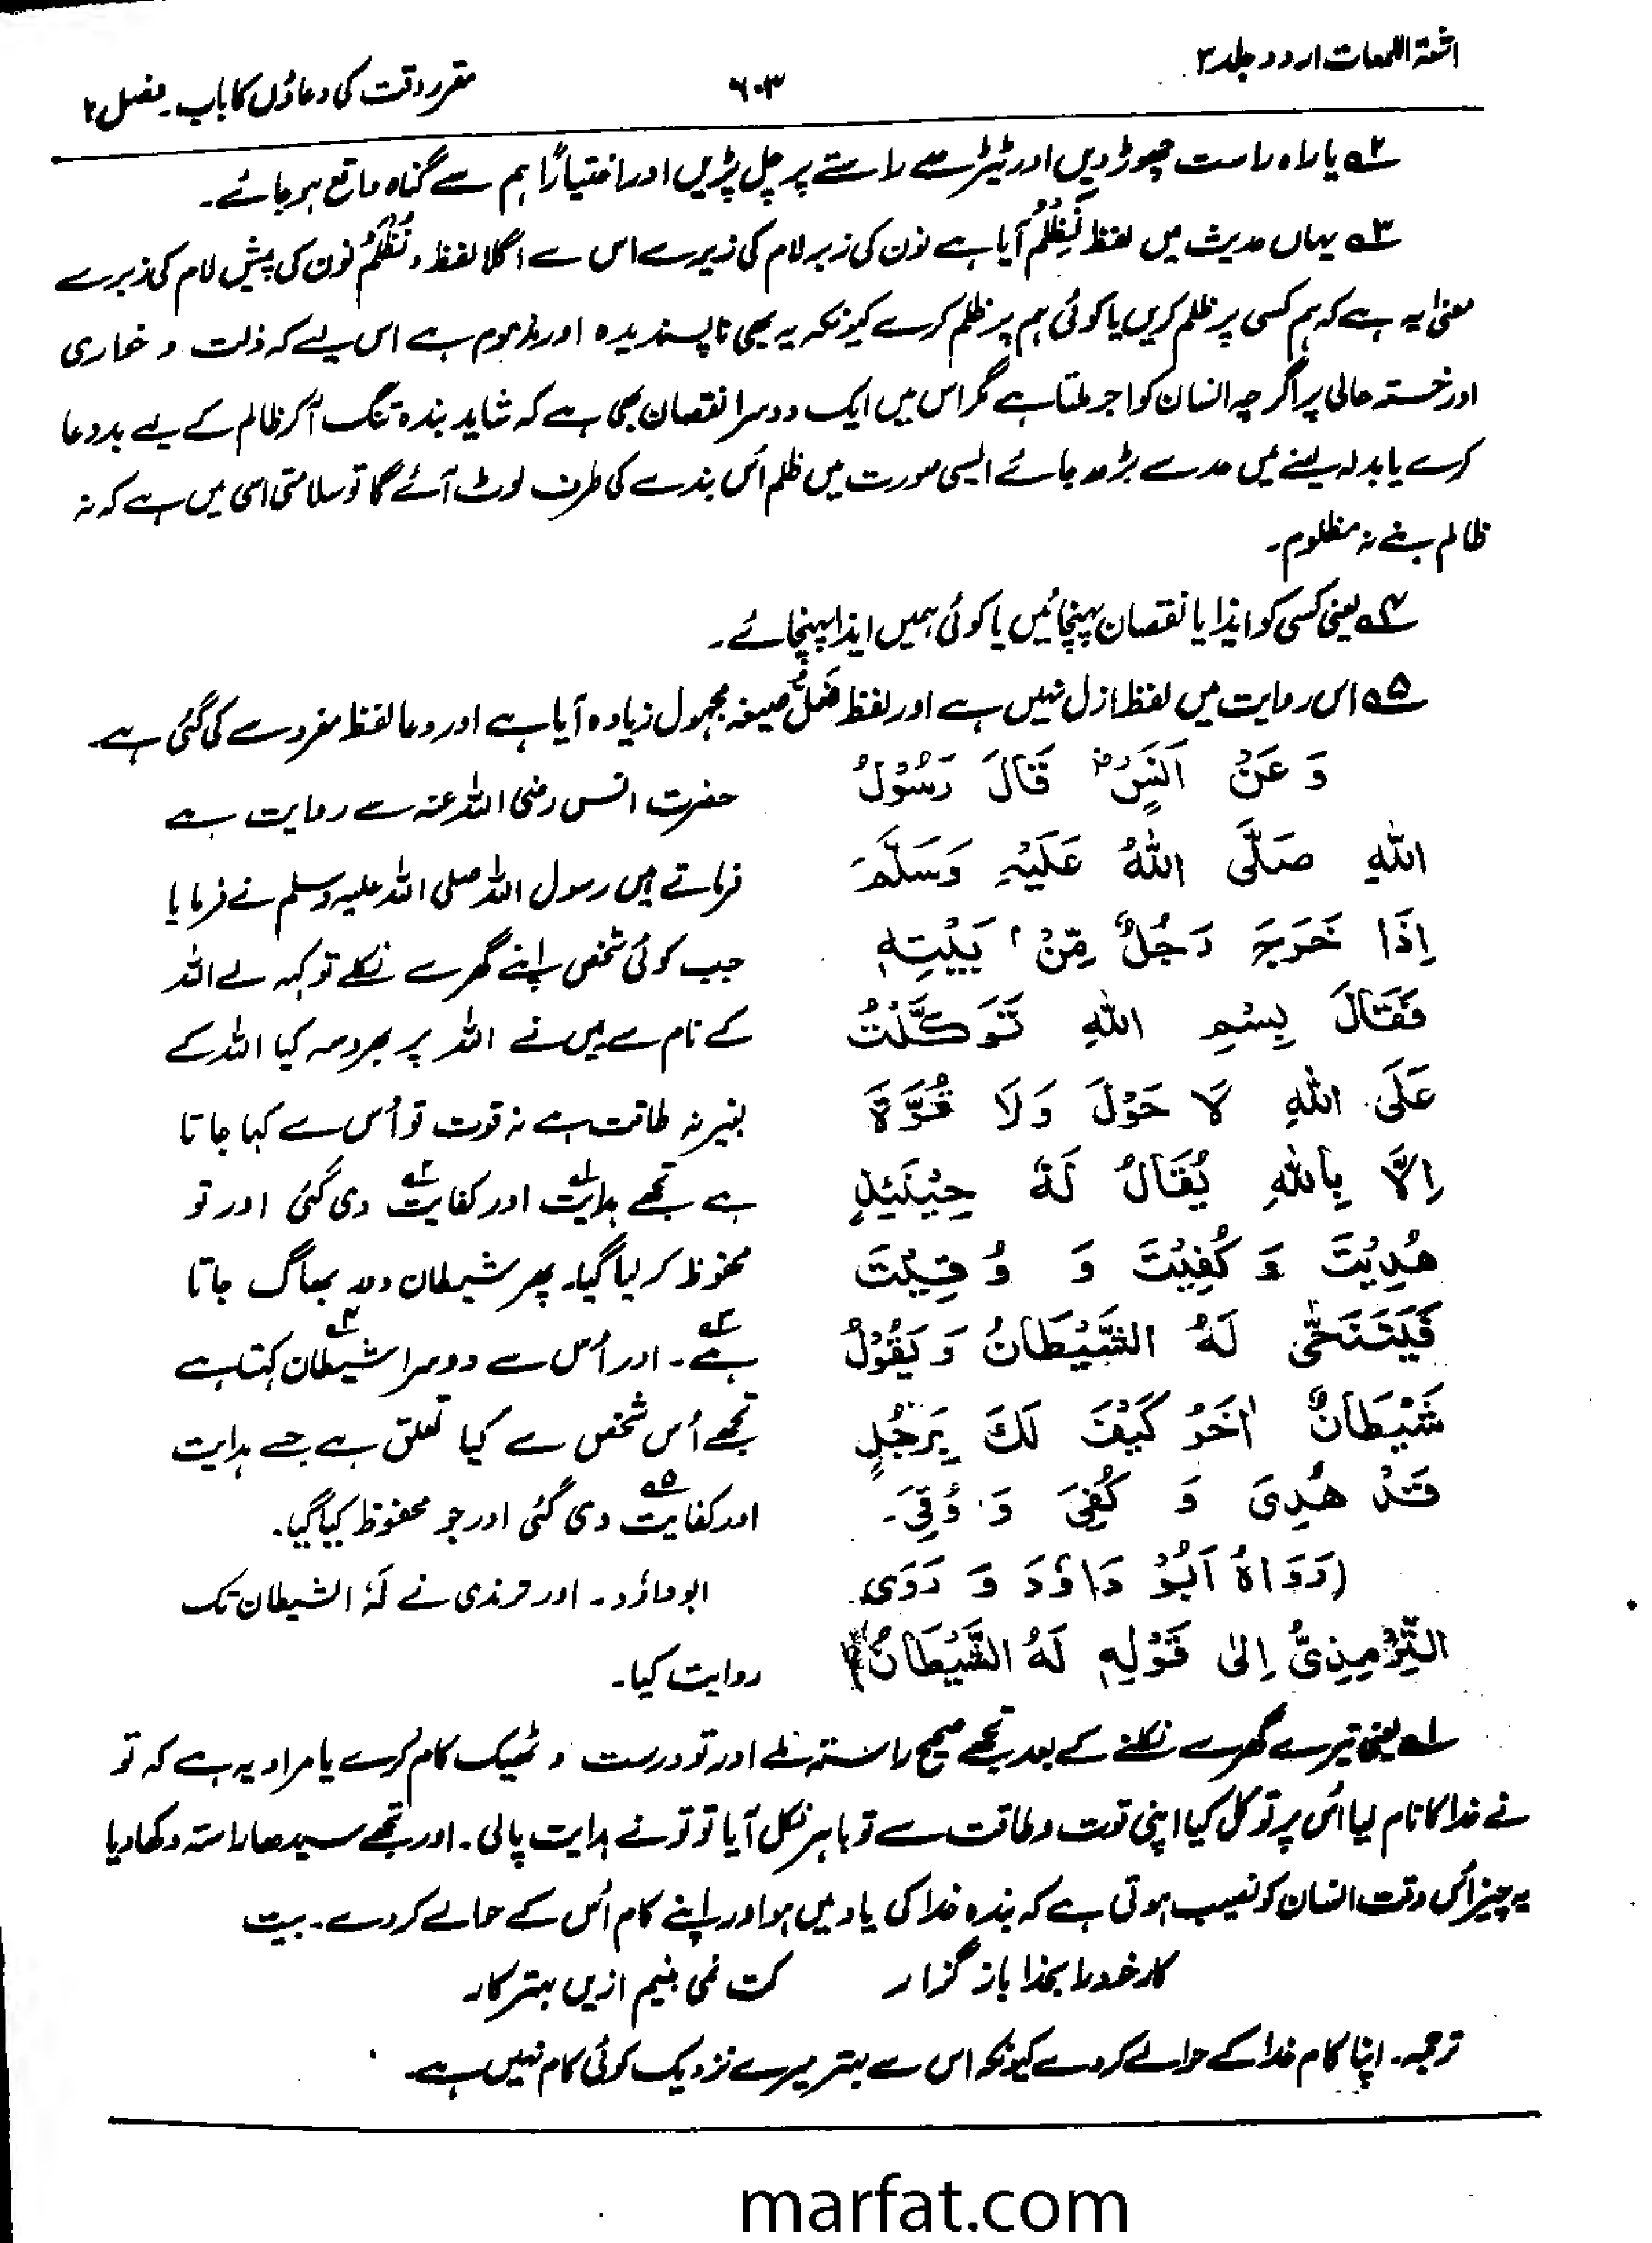 اشعۃ اللمعات اردو جلد ۳
۶۰۳
مقرر وقت کی دعاؤں کا باب۔ فصل ۲
۲ یا راہ راست چھوڑ دیں اور ٹیڑھے راستے پر چل پڑیں اور اختیاراً ہم سے گناہ واقع ہو جائے۔
۳ یہاں حدیث میں لفظ نَظْلِمُ آیا ہے نون کی زبر لام کی زیر سے اس سے اگلا لفظ، نُظْلَمُ نون کی پیش لام کی زبر سے
معنیٰ یہ ہے کہ ہم کسی پر ظلم کریں یا کوئی ہم پر ظلم کرے کیونکہ یہ بھی ناپسندیدہ اور مذموم ہے اس لیے کہ ذلت و خواری
اور خستہ حالی پر اگرچہ انسان کو اجر ملتا ہے مگر اس میں ایک دوسرا نقصان بھی ہے کہ شاید بندہ تنگ آکر ظالم کے لیے بددعا
کرے یا بدلہ لینے میں حد سے بڑھ جائے ایسی صورت میں ظلم اُس بندے کی طرف لوٹ آئے گا تو سلامتی اسی میں ہے کہ نہ
ظالم بنے نہ مظلوم۔
۴ یعنی کسی کو ایذا یا نقصان پہنچائیں یا کوئی ہمیں ایذا پہنچائے۔
۵ اس روایت میں لفظ ازل نہیں ہے اور لفظ صیغہ مجہول زیادہ آیا ہے اور دعا لفظ مفرد سے کی گئی ہے۔
وَ عَنْ اَنَسٍؓ قَالَ رَسُوْلُ
اللّٰہِ صَلَّی اللّٰہُ عَلَیْہِ وَسَلَّمَ
اِذَا خَرَجَ رَجُلٌ مِّنْ بَیْتِہٖ
فَقَالَ بِسْمِ اللّٰہِ تَوَکَّلْتُ
عَلَی اللّٰہِ لَا حَوْلَ وَلَا قُوَّۃَ
اِلَّا بِاللّٰہِ یُقَالُ لَہٗ حِیْنَئِذٍ
ھُدِیْتَ وَ کُفِیْتَ وَ وُقِیْتَ
فَیَتَنَحّٰی لَہُ الشَّیْطَانُ وَ یَقُوْلُ
شَیْطَانٌ اٰخَرُ کَیْفَ لَکَ بِرَجُلٍ
قَدْ ھُدِیَ وَ کُفِیَ وَ وُقِیَ۔
(رَوَاہُ اَبُوْ دَاوٗدَ وَ رَوَی
التِّرْمِذِیُّ اِلٰی قَوْلِہٖ لَہُ الشَّیْطَانُ)
حضرت انس رضی اللہ عنہ سے روایت ہے
فرماتے ہیں رسول اللہ صلی اللہ علیہ وسلم نے فرمایا
جب کوئی شخص اپنے گھر سے نکلے تو کہہ لے اللہ
کے نام سے میں نے اللہ پر بھروسہ کیا اللہ کے
بغیر نہ طاقت ہے نہ قوت تو اُس سے کہا جاتا
ہے تجھے ہدایت۱ اور کفایت۲ دی گئی اور تو
محفوظ کر لیا گیا۔ پھر شیطان دور بھاگ جاتا
ہے۳۔ اور اُس سے دوسرا شیطان۴ کہتا ہے
تجھے اُس شخص سے کیا تعلق ہے جسے ہدایت
اور کفایت۵ دی گئی اور جو محفوظ کیا گیا۔
ابوداؤد۔ اور ترمذی نے لَہُ الشیطان تک
روایت کیا۔
۱ یعنی تیرے گھر سے نکلنے کے بعد تجھے صحیح راستہ ملے اور تو درست و ٹھیک کام کرے یا مراد یہ ہے کہ تو
نے خدا کا نام لیا اُس پر توکل کیا اپنی قوت و طاقت سے تو باہر نکل آیا تو تو نے ہدایت پالی۔ اور تجھے سیدھا راستہ دکھا دیا
یہ چیز اُس وقت انسان کو نصیب ہوتی ہے کہ بندہ خدا کی یاد میں ہو اور اپنے کام اُس کے حوالے کر دے۔ بیت
کار خود را بخدا باز گزار کت نمی بینم ازیں بہتر کار
ترجمہ۔ اپنا کام خدا کے حوالے کر دے کیونکہ اس سے بہتر میرے نزدیک کوئی کام نہیں ہے۔
marfat.com